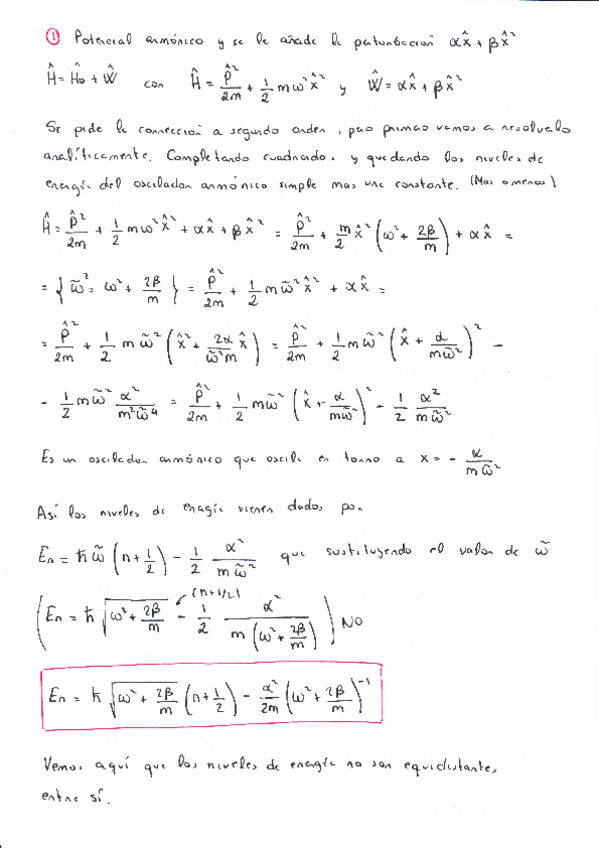 ① Potencial armónico y se le añade la perturbación αx̂ + βx̂²
Ĥ = Ĥ₀ + Ŵ con Ĥ = P̂²/2m + 1/2 mω²x̂² y Ŵ = αx̂ + βx̂²
Se pide la corrección a segundo orden, pero primero vamos a resolverlo
analíticamente. Completando cuadrados y quedando los niveles de
energía del oscilador armónico simple mas una constante. (Mas o menos)
Ĥ = P̂²/2m + 1/2 mω²x̂² + αx̂ + βx̂² = P̂²/2m + m/2 x̂² (ω² + 2β/m) + αx̂ =
= { ω̃² = ω² + 2β/m } = P̂²/2m + 1/2 mω̃²x̂² + αx̂ =
= P̂²/2m + 1/2 mω̃² (x̂² + 2α/ω̃²m x̂) = P̂²/2m + 1/2 mω̃² (x̂ + α/mω̃²)² -
- 1/2 mω̃² α²/m²ω̃⁴ = P̂²/2m + 1/2 mω̃² (x̂ + α/mω̃²)² - 1/2 α²/mω̃²
Es un oscilador armónico que oscila en torno a x = - α/mω̃²
Así los niveles de energía vienen dados por
En = ħω̃ (n + 1/2) - 1/2 α²/mω̃² que sustituyendo el valor de ω̃
(n+1/2)
(En = ħ √(ω² + 2β/m) - 1/2 α²/m(ω² + 2β/m)) NO
En = ħ √(ω² + 2β/m) (n + 1/2) - α²/2m (ω² + 2β/m)⁻¹
Vemos aquí que los niveles de energía no son equidistantes
entre sí.